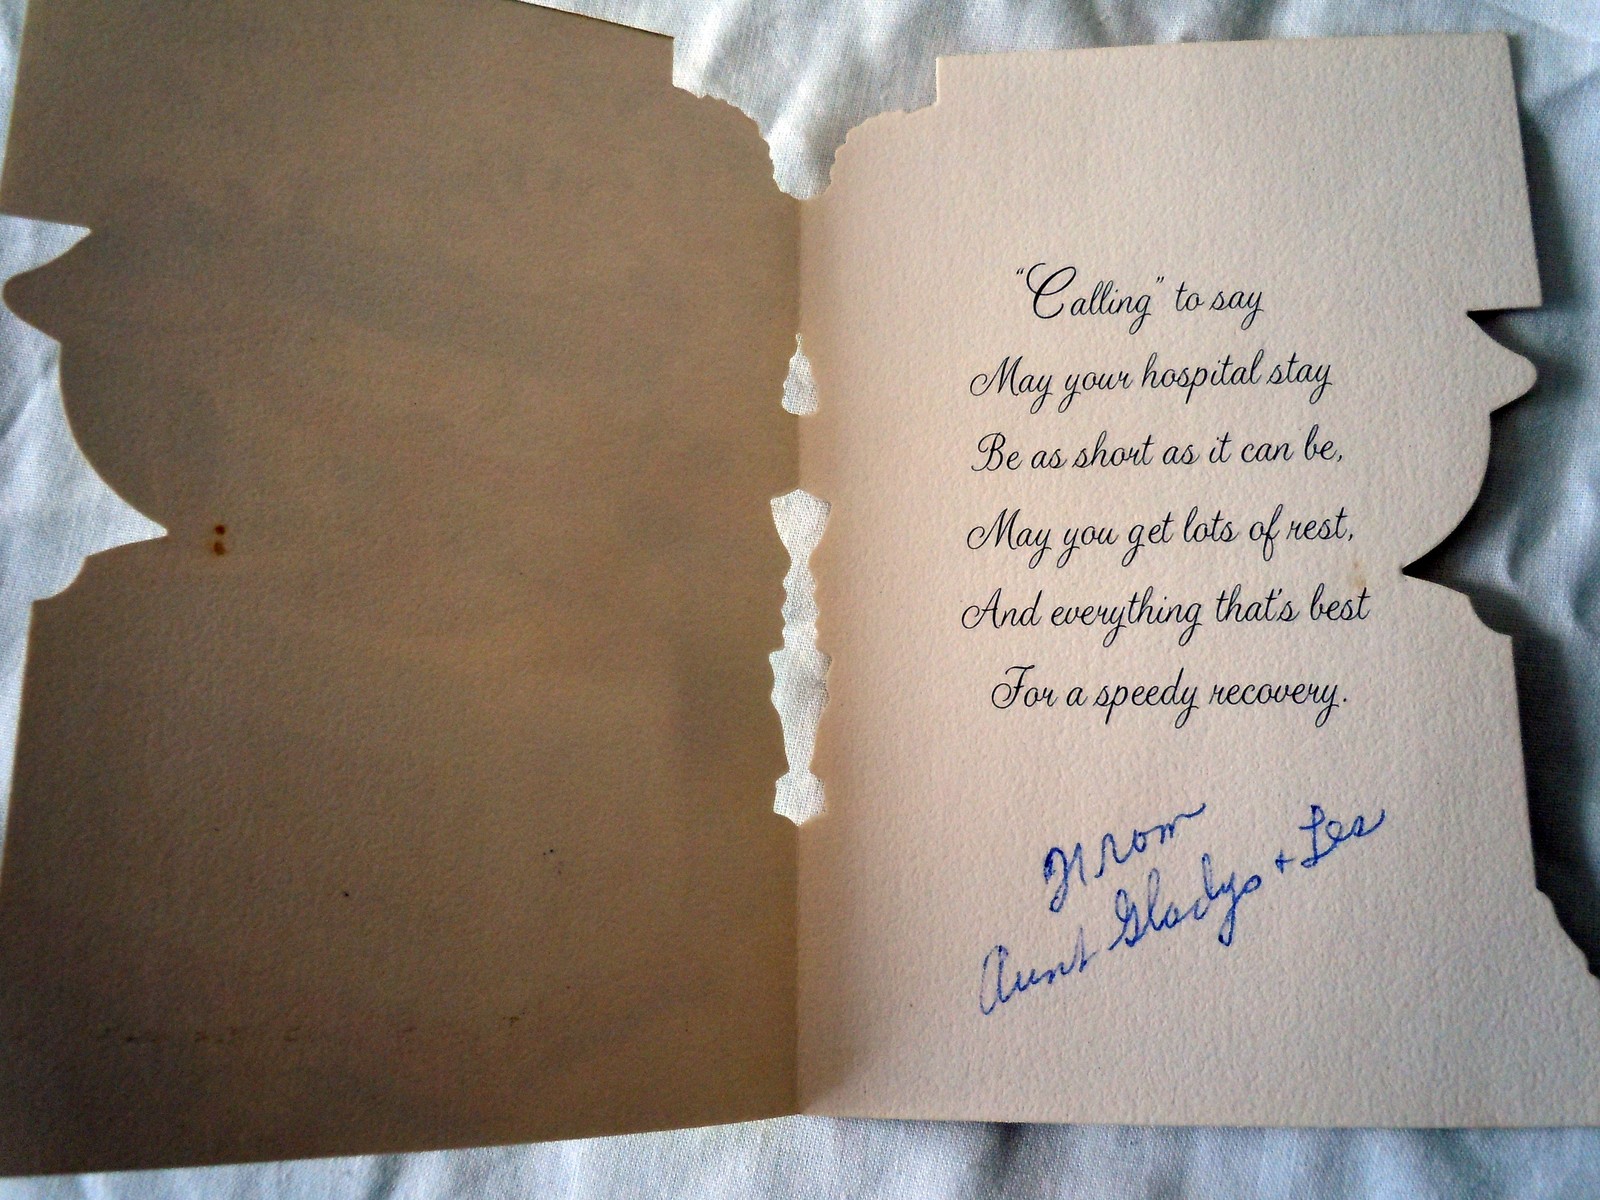 "Calling" to say
May your hospital stay
Be as short as it can be,
May you get lots of rest,
And everything that's best
For a speedy recovery.
From
Aunt Gladys + Les